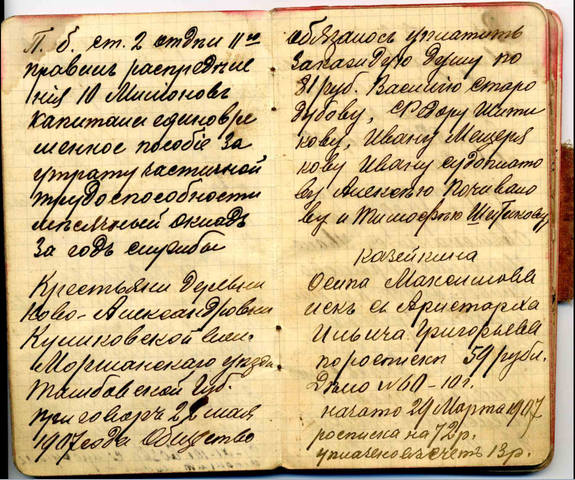 П. б. ст. 2 отдѣл II го
правилъ распредѣле
нія 10 Милионовъ
капитала единовре
менное пособіе за
утрату частичной
трудоспособности
мѣсячный окладъ
за годъ службы
Крестьяни деревни
Ново-Александровки
Куликовской вол.
Моршанскаго уѣзда
Тамбовской Губ.
приговоръ 22 мая
1907 года Общество
обязалось уплатить
за каждую душу по
81 руб. Василію Старо
дубову, Федору Шити
кову, Ивану Мещеря
кову Ивану
ву Алексѣю Почивало
ву и Тимофѣю Шитикову
Казейкина
Осипа Максимова
искъ съ Аристарха
Ильича Григорьева
по роспискѣ 59 рубл.
Дѣло № 60-10 г.
начато 29 Марта 1907
росписка на 72 р.
уплачено въ счетъ 13 р.